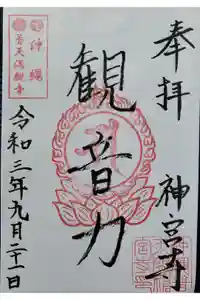 奉拝
神宮寺
観音力
沖縄
普天満観音
令和三年九月二十一日